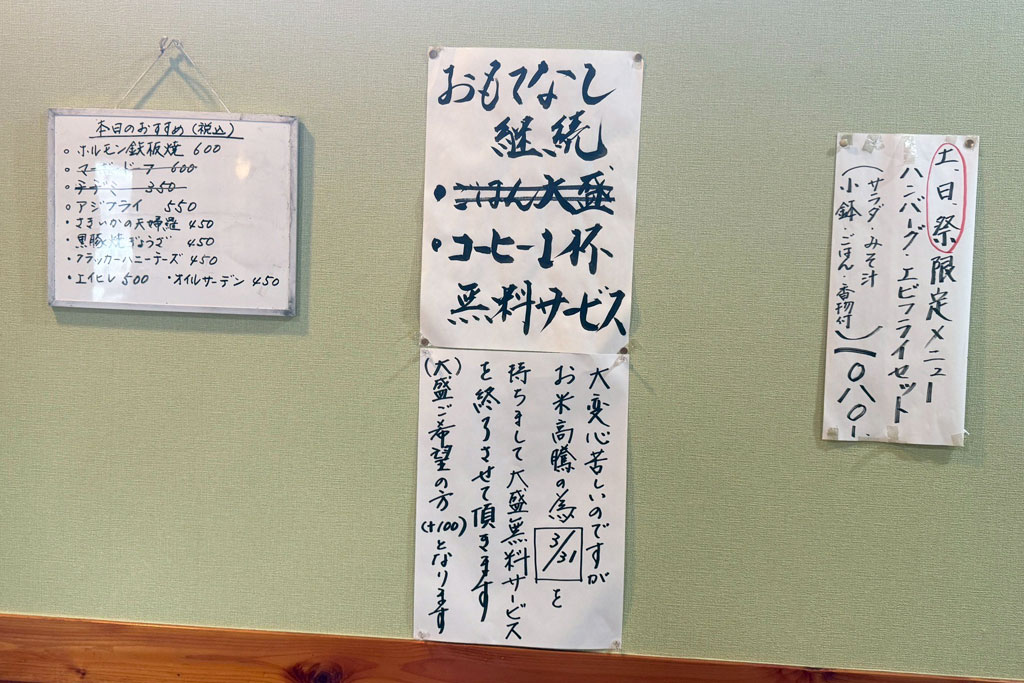 本日のおすすめ(税込)
。ホルモン鉄板焼 600
。マーボードーフ 600
。チヂミ 350
。アジフライ 550
・さきいかの天婦羅 450
・黒豚焼ぎょうざ 450
・クラッカーハニーチーズ 450
・エイヒレ 500 ・オイルサーデン 450
おもてなし
継続
・ごはん大盛
・コーヒー1杯
無料サービス
大変心苦しいのですが
お米高騰の為3/31を
持ちまして大盛無料サービス
を終了させて頂きます
(大盛ご希望の方(+100)となります
土、日、祭限定メニュー
ハンバーグ・エビフライセット
(サラダ・みそ汁
小鉢・ごはん・香物付)一〇八〇!